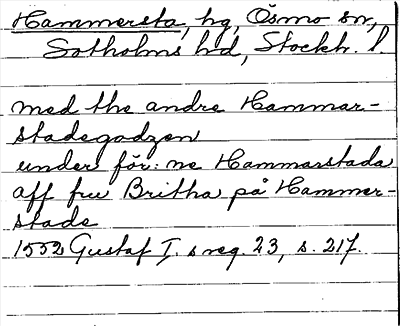 Hammersta, hg, Ösmo sn,
Sotholms hd, Stockh. l.
med the andre Hammar-
stadegodzen
under för: ne Hammarstada
aff fru Britha på Hammer-
stade
1552 Gustaf I. s reg. 23, s. 217.